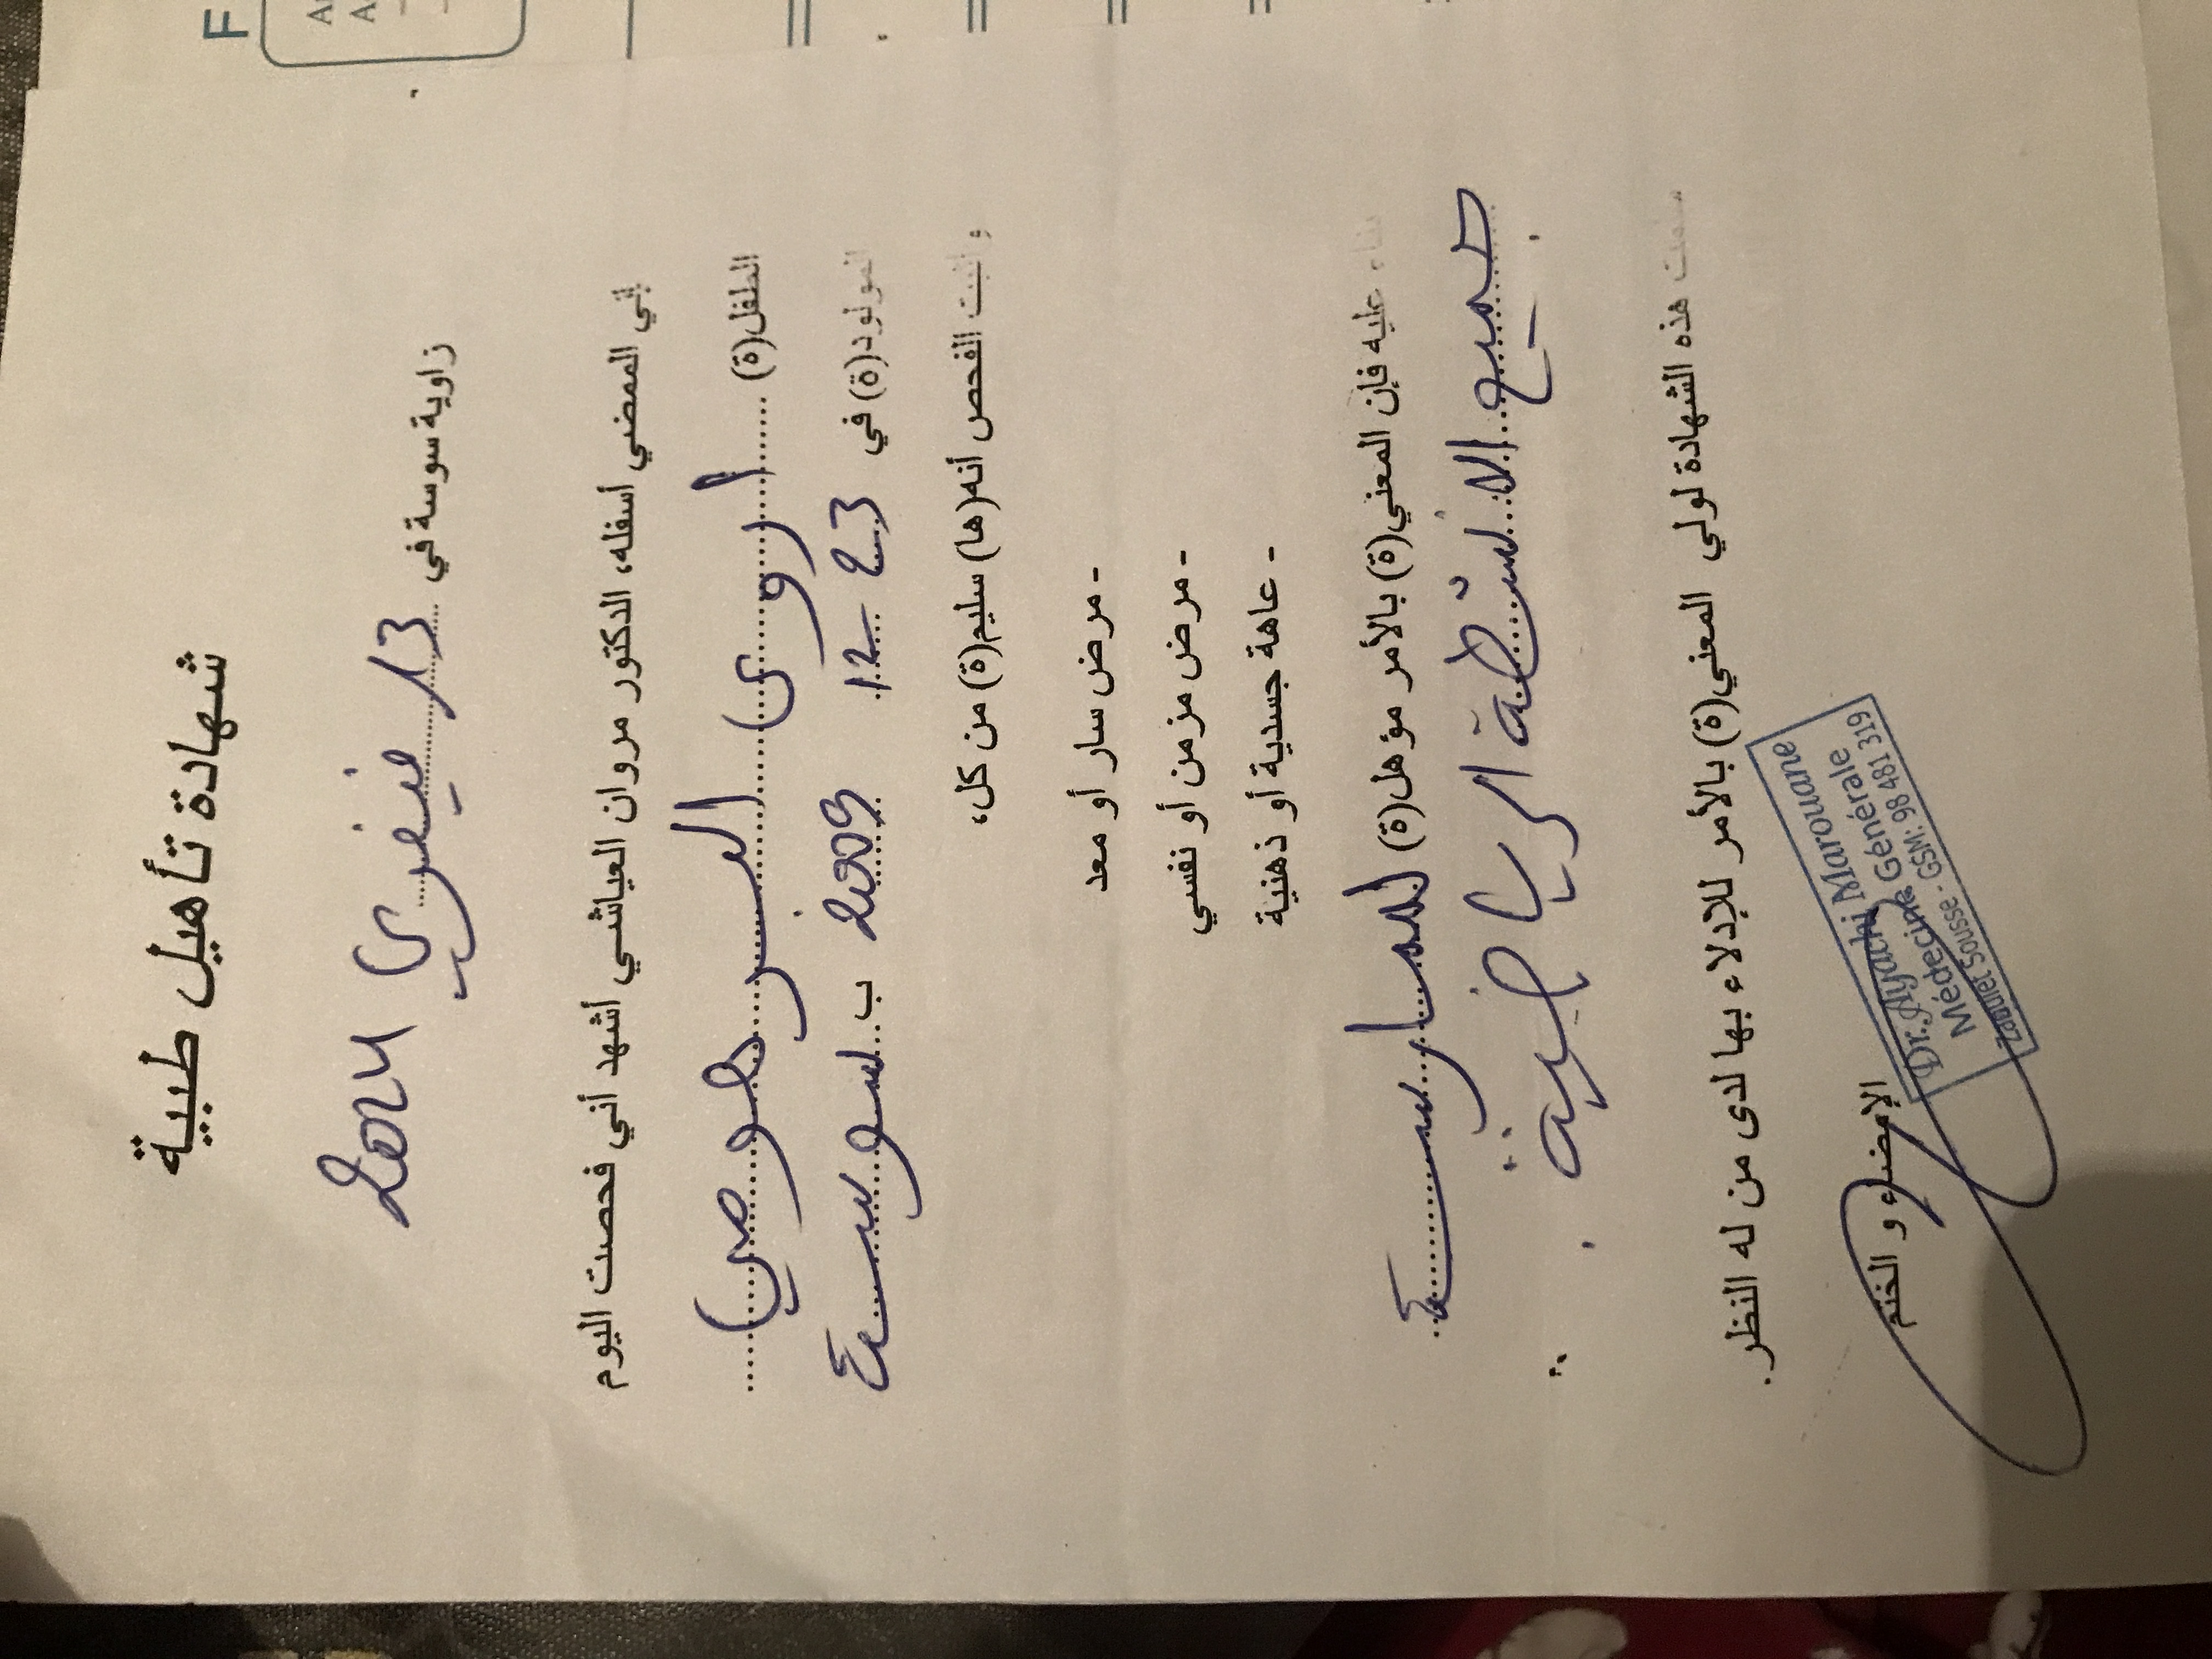 شهادة تأهيل طبية
زاوية سوسة في 13 فيفري 2024
إني الممضي أسفله، الدكتور مروان العياشي أشهد أني فحصت اليوم
الطفل(ة) أروى
المولود(ة) في 23 12 2009 ب سوسة
و أثبت الفحص أنه(ها) سليم(ة) من كل،
- مرض سار أو معد
- مرض مزمن أو نفسي
- عاهة جسدية أو ذهنية
بناء عليه فإن المعني(ة) بالأمر مؤهل(ة) لممارسة
جميع الأنشطة الرياضية
سلمت هذه الشهادة لولي المعني(ة) بالأمر للإدلاء بها لدى من له النظر.
الإمضاء و الختم
Dr. Ayachi Marouane
Médecine Générale
Zaouiet Sousse - GSM: 98 481 319
F